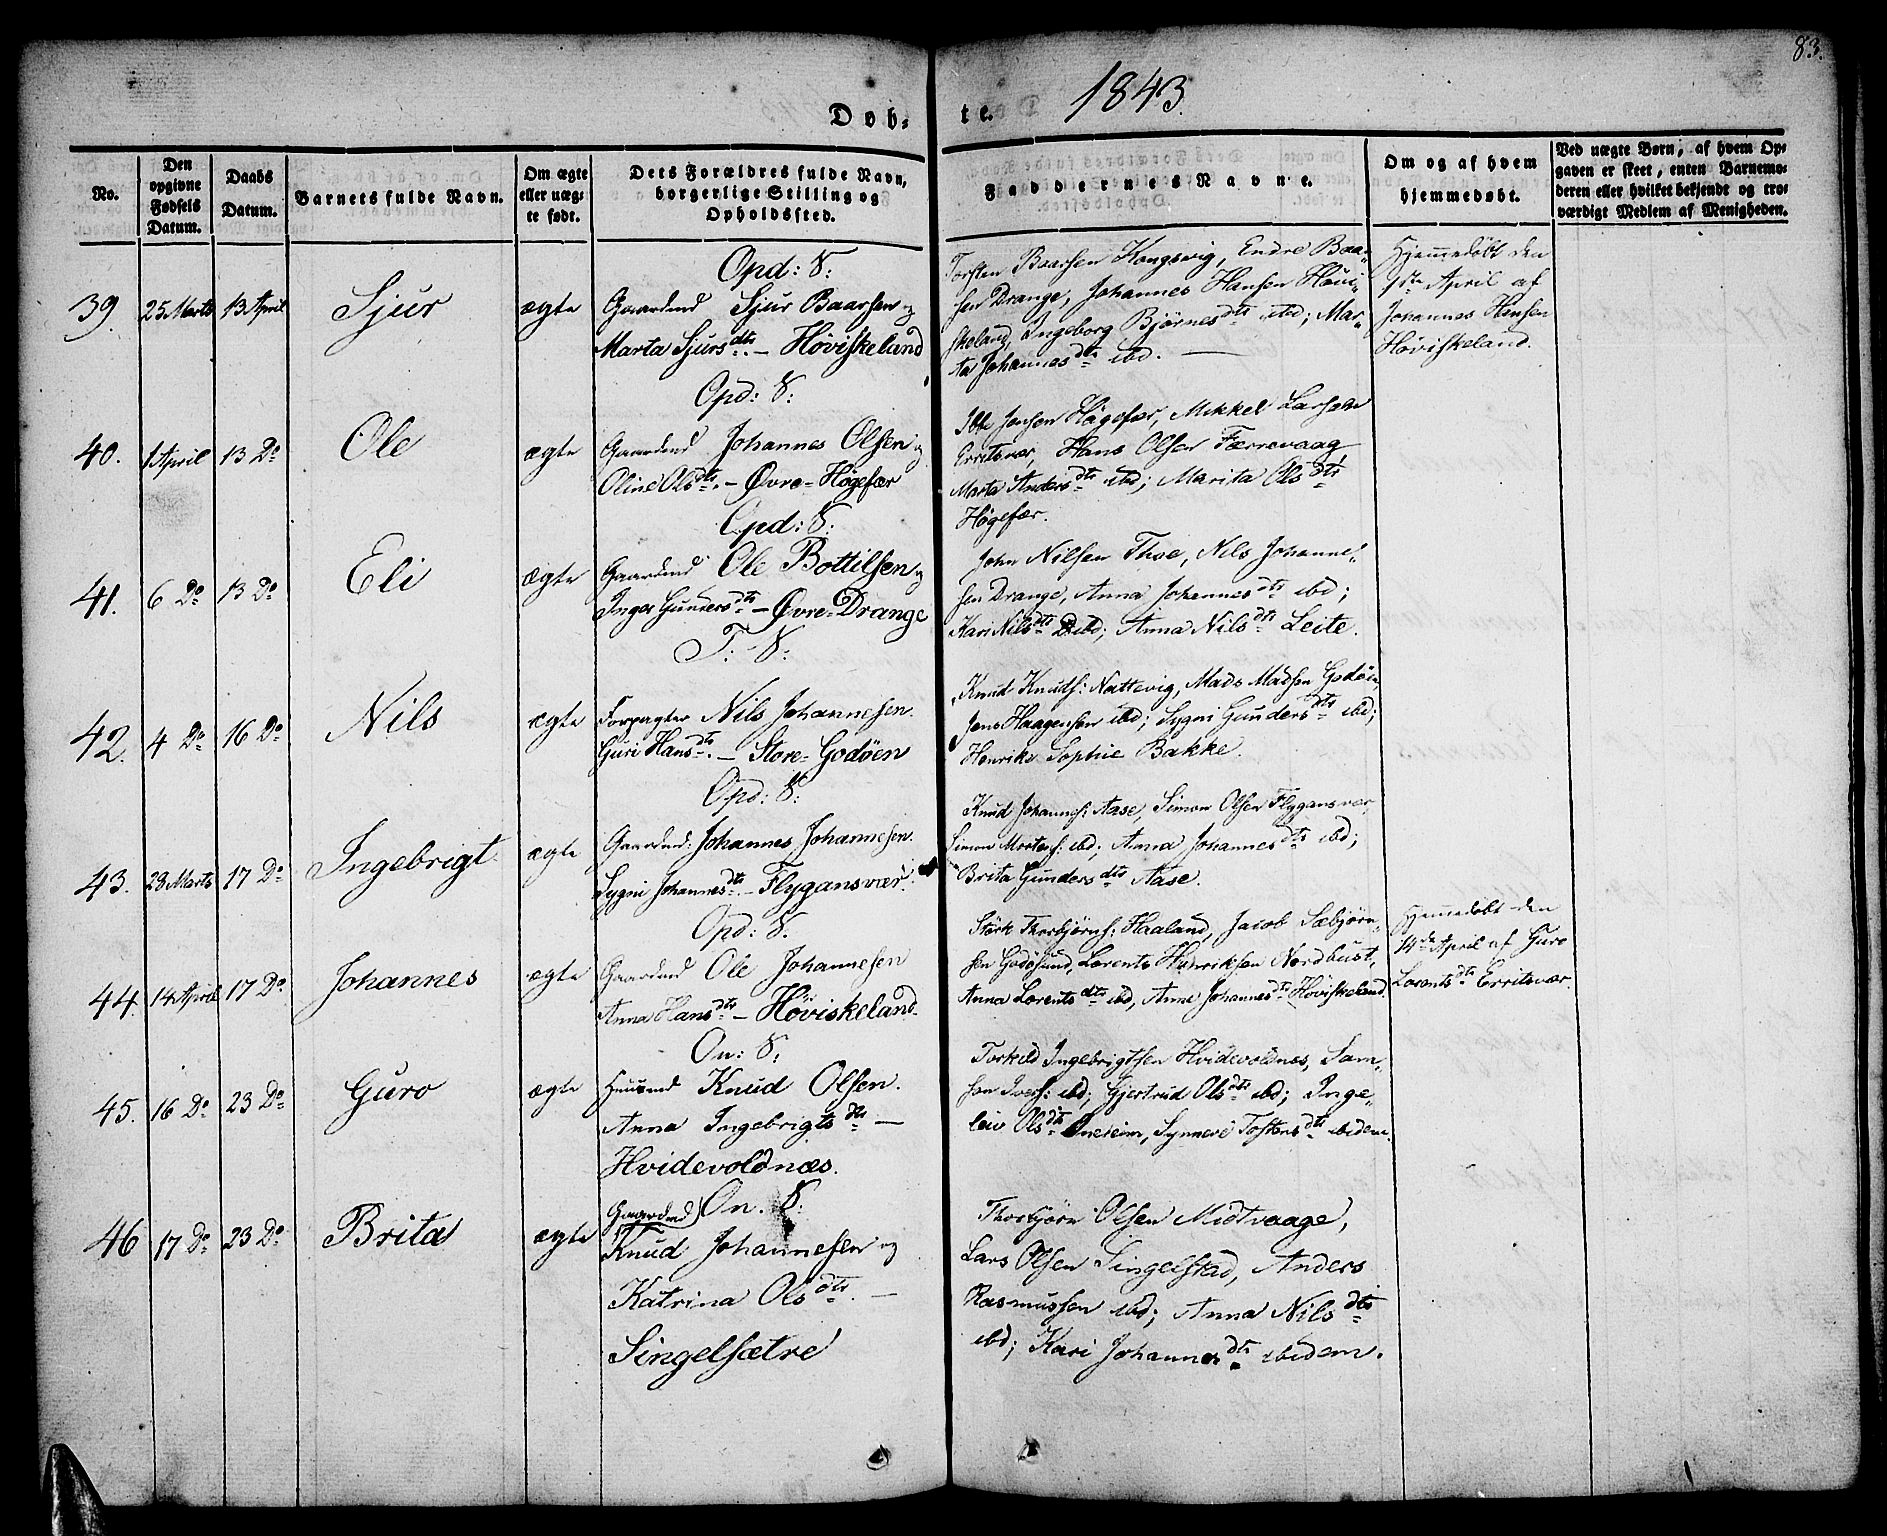 83.
Døb-
te. 1843.
No.
Den
opgivne
Fødsels
Datum.
Daabs
Datum.
Barnets fulde Navn.
Om ægte
eller uæg-
te født.
Dets Forældres fulde Navn,
borgerlige Stilling og
Opholdssted.
Faddernes Navne.
Om og af hvem
hjemmedøbt.
Ved uægte Børn, af hvem Op-
gaven er skeet, enten Barnemo-
deren eller hvilket bekjendt og tro-
værdigt Medlem af Menigheden.
39. 25 Marts 13 April Sjur ægte
Opd: S:
Gaardmd Sjur Baarsen og
Marta Sjursdtr. – Høviskeland
Torsten Baarsen Kongsvig, Endre Baar-
sen Drange, Johannes Hansen Høvi-
skeland, Ingeborg Bjørnesdtr ibd; Mar-
ta Johannesdtr ibd. —
Hjemmedøbt den
April af
Johannes Hansen
Høviskeland.
40. 1 April 13 Do Ole ægte
Opd: S:
Gaardmd Johannes Olsen og
Oline Olsdtr. – Øvre-Høgefær
Jensen Høgefær, Mikkel Larsen
Erritsvær, Hans Olsen Færrevaag
Marta Andersdtr ibd; Marita Olsdtr
Høgefær.
41. 6 Do 13 Do Eli ægte
Opd: S:
Gaardmd Ole Bottilsen og
Inger Gundersdtr – Øvre-Drange
John Nilsen Thoe, Nils Johanne-
sen Drange, Anna Johannesdtr ibd;
Kari Nilsdtr ibd; Anna Nilsdtr Leite.
42. 4 Do 16 Do Nils ægte
T: S:
Forpagter Nils Johannesen.
Guri Hansdtr. – Store-Godøen
Knud Knuds: Nattevig, Mads Madsen Godøen,
Jens Haagensen ibd; Sygni Gundersdtr ibd;
Henrike Sophie Bakke.
43. 23 Marts 17 Do Ingebrigt ægte
Opd: S:
Gaardmd: Johannes Johannesen.
Sygni Johannesdtr. – Flygansvær.
Knud Johanns: Aase, Simon Olsen Flygansvær,
Simon Mortens: ibd; Anna Johannesdtr ibd;
Brita Gundersdtr Aase.
44. 14 April 17 Do Johannes ægte
Opd: S:
Gaardmd Ole Johannesen
Anna Hansdtr – Høviskeland.
Størk Thorbjørns: Haaland, Jacob Sæbjørn-
sen Godøsund, Lorents Henriksen Nordhust,
Anna Lorentsdtr ibd, Anne Johannesdtr Høviskeland.
Hjemmedøbt den
14de April af Guro
Lorentsdtr Erritsvær.
45. 16 Do 23 Do Guro ægte
On: S:
Huusmd Knud Olsen.
Anna Ingebrigtsdtr —
Hvidevoldnæs.
Torkild Ingebrigtsen Hvidevoldnæs, Sam-
son Ivers: ibd; Gjertrud Olsdtr ibd; Inge-
leiv Olsdtr Oneieim, Synneve Tostensdtr ibidem.
46 17 Do 23 Do Brita ægte
Gaardmd On. S:
Knud Johannesen og
Katrina Olsdtr. —
Singelsætre
Thorbjørn Olsen Midtvaage,
Lars Olsen Singelstad, Anders
Rasmussen ibd; Anna Nilsdtr
ibd; Kari Johannesdtr ibidem.